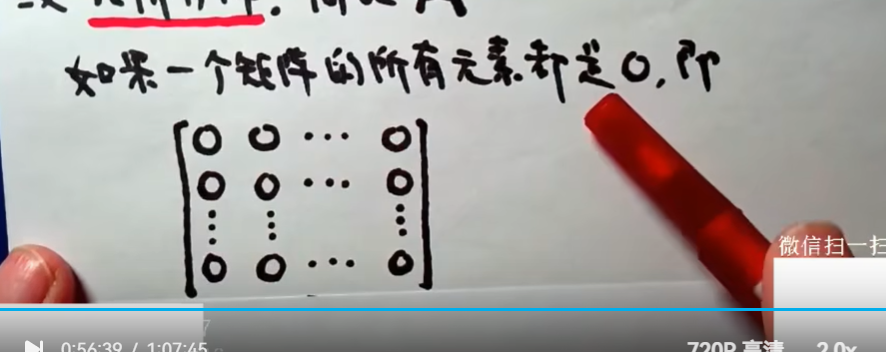 如果一个矩阵的所有元素都是0,即
0 0 ··· 0
0 0 ··· 0
⋮ ⋮ ⋮
0 0 ··· 0
微信扫一扫
0:56:39 / 1:07:45
720P 高清 2.0x